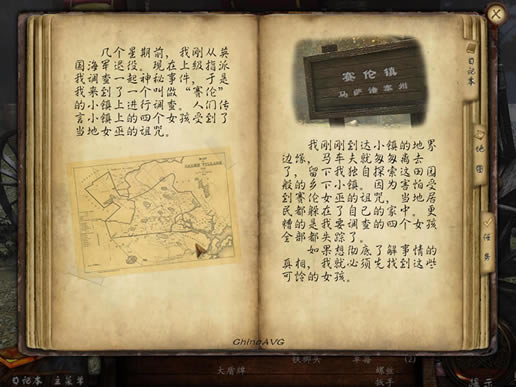 几个星期前，我刚从英
国海军退役。现在上级指派
我调查一起神秘事件，于是
我来到了一个叫做“赛伦”
的小镇上进行调查。人们传
言小镇上的四个女孩受到了
当地女巫的诅咒。
赛伦镇
马萨诸塞州
我刚刚到达小镇的地界
边缘，马车夫就匆匆离去
了，留下我独自探索这田园
般的乡下小镇。因为害怕受
到赛伦女巫的诅咒，当地居
民都躲在了自己的家中。更
糟的是我要调查的四个女孩
全部都失踪了。
如果想彻底了解事情的
真相，我就必须先找到这些
可怜的女孩。
日记本
地图
任务
ChinaAVG
日记本
主菜单
铁榔头
草莓
(2)
大盾牌
螺丝
扳手
提示